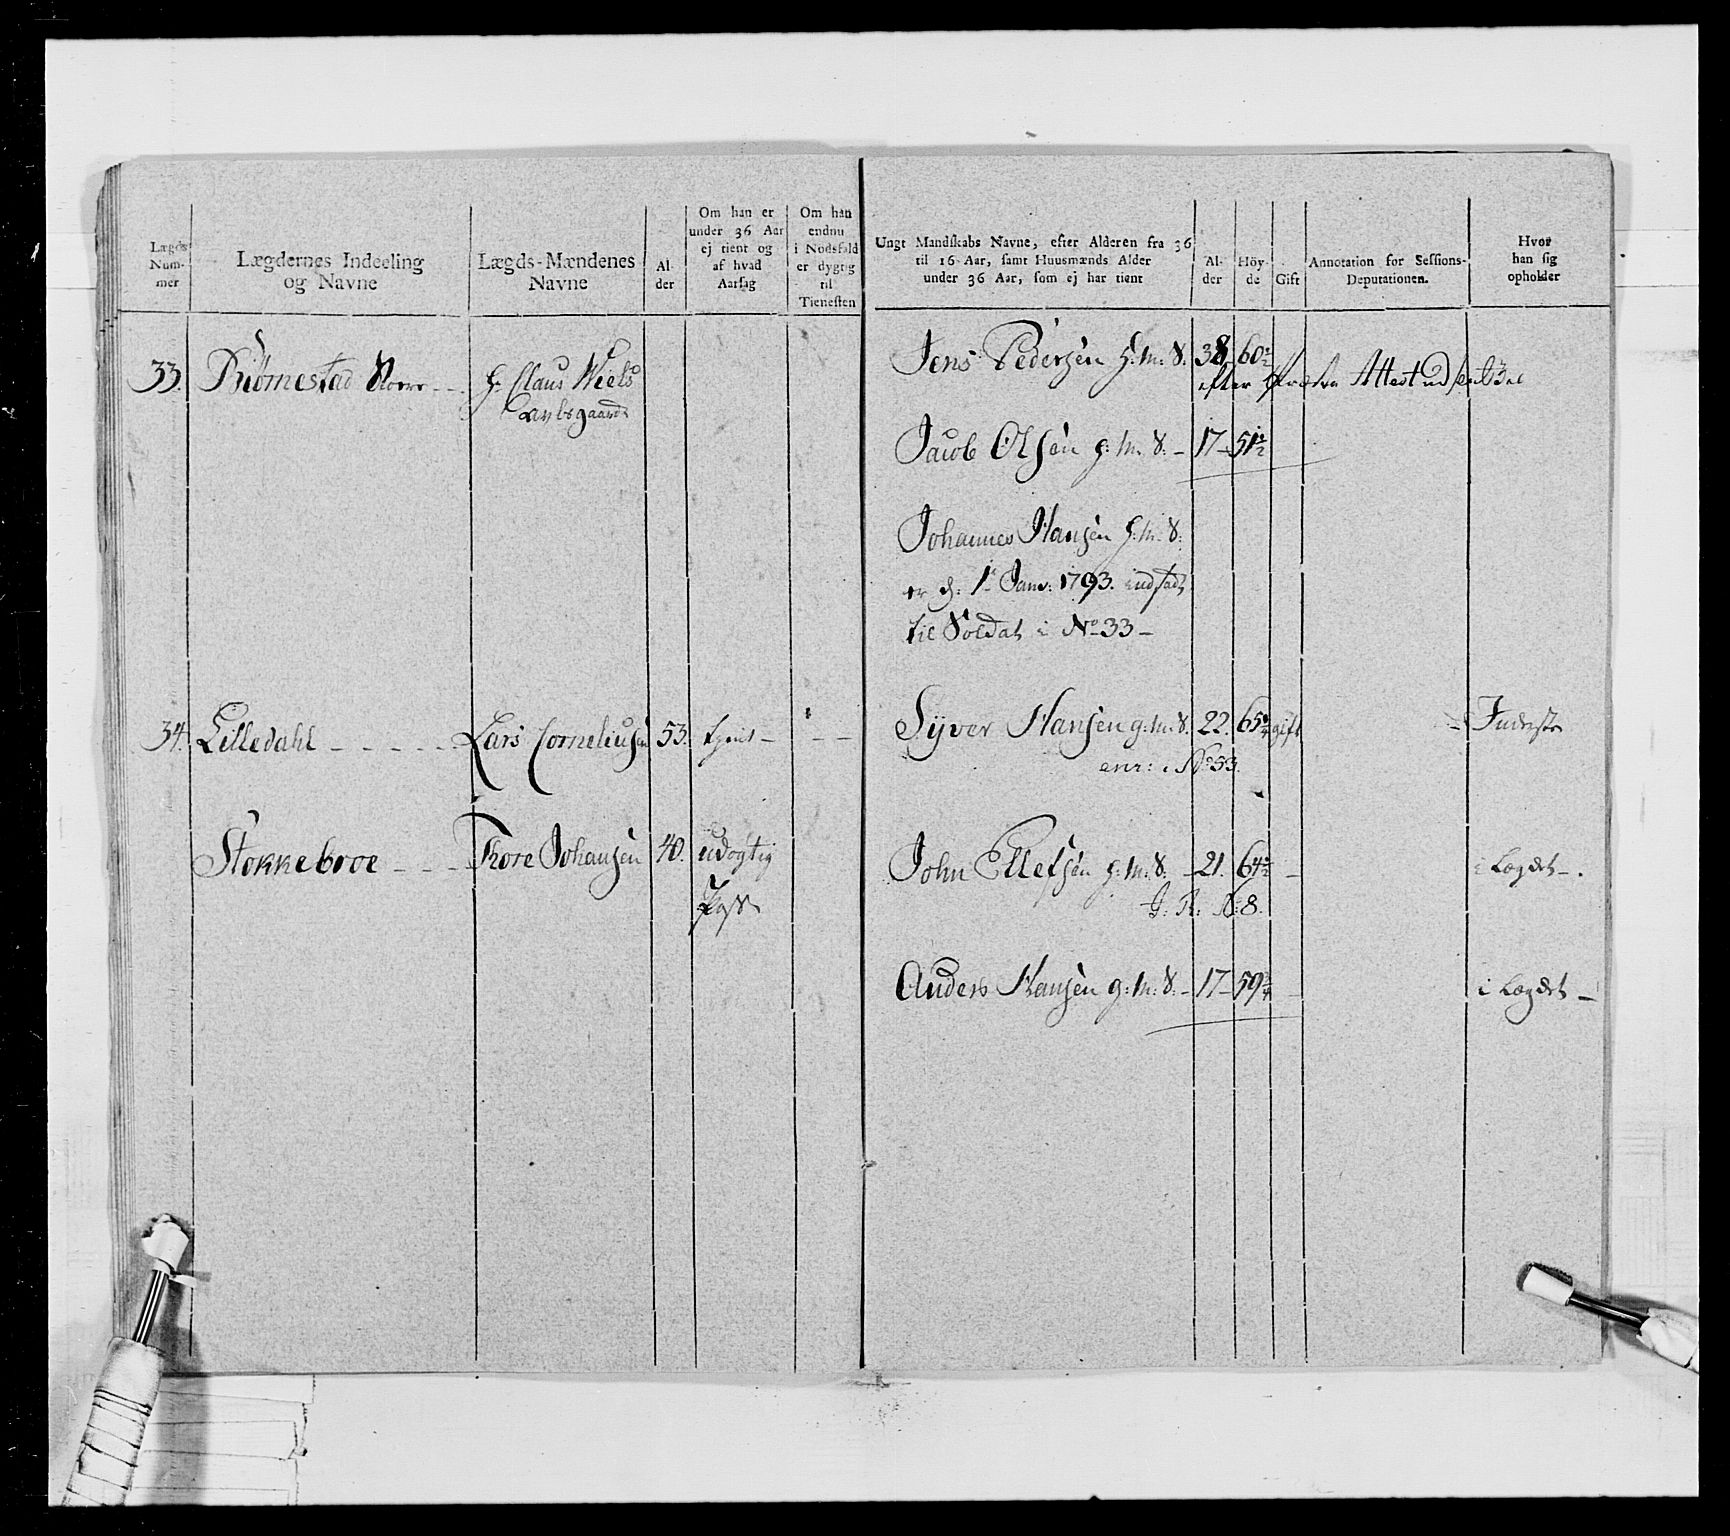 Lægds Num- mer
Lægdernes Indeeling og Navne
Lægds-Mændenes Navne
Al- der
Om han er under 36 Aar ej tient og af hvad Aarsag
Om han endnu i Nödsfald er dygtig til Tienesten
Ungt Mandskabs Navne, efter Alderen fra 36 til 16 Aar, samt Huusmænds Alder under 36 Aar, som ej har tient
Al- der
Höy- de
Gift
Annotation for Sessions- Deputationen.
Hvor han sig opholder
33. Biörnestad Noere — H: Claus Niels
Jens Pedersen H: M: S. 38 60 1/2
efter Attest
Jacob Olsen H: M: S. — 17 — 51 1/2
Johannes Hansen H: M: S:
er d: 1te Janv: 1793. indsadt
til Soldat i No 33 —
34. Lilledahl — — — — Lars Corneliusen 53. tient — — —
Syver Hansen g: M: S. 22. 65 gift — Inderste
enr: i No 53.
Stokkeboe — — — Thore Johansen 40. udögtig
John Ellefsen H: M: S: — 21. 64 1/2 — i Lægdet —.
J: R: N: 8.
Anders Hansen g: M: S. — 17 — 59 3/4 — i Lægdet —